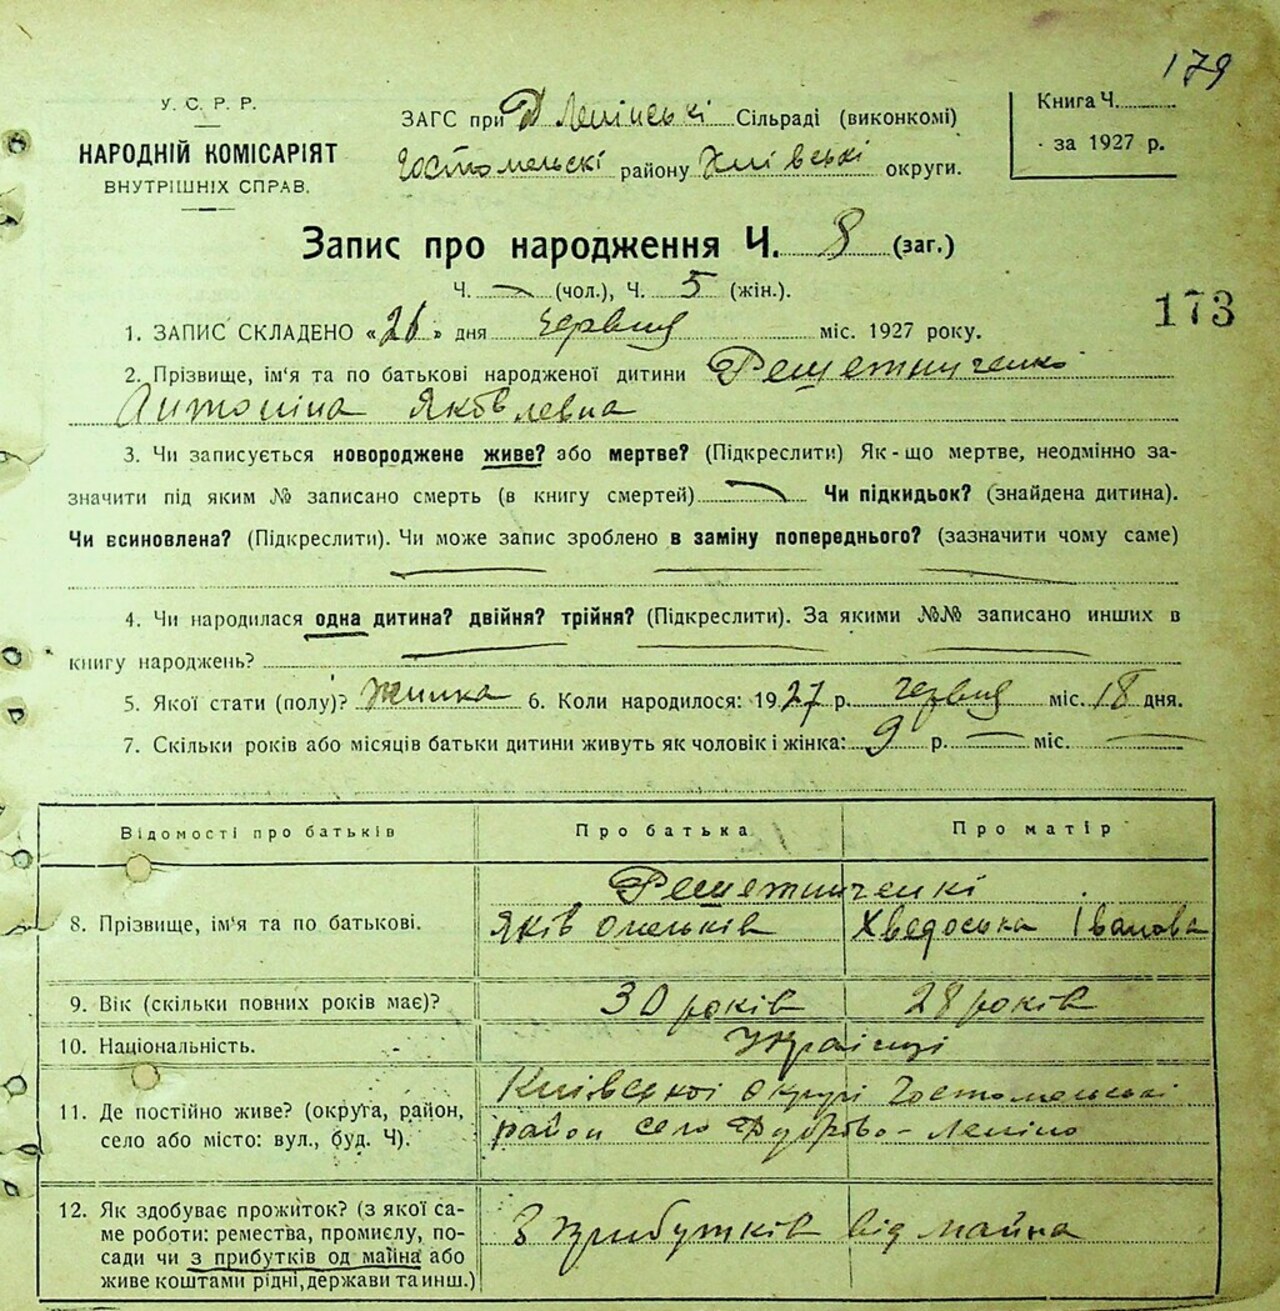 179
У. С. Р. Р.
НАРОДНІЙ КОМІСАРІЯТ
ВНУТРІШНІХ СПРАВ.
ЗАГС при Д Ленінські Сільраді (виконкомі)
Гостомельскі району Київські округи.
Книга Ч.
за 1927 р.
Запис про народження Ч. 8 (заг.)
Ч. — (чол.), Ч. 5 (жін.).
173
1. ЗАПИС СКЛАДЕНО «26» дня червня міс. 1927 року.
2. Прізвище, ім'я та по батькові народженої дитини Решетниченко
Антоніна Яковлевна
3. Чи записується новороджене живе? або мертве? (Підкреслити) Як-що мертве, неодмінно за-
значити під яким № записано смерть (в книгу смертей) — Чи підкидьок? (знайдена дитина).
Чи всиновлена? (Підкреслити). Чи може запис зроблено в заміну попереднього? (зазначити чому саме)
4. Чи народилася одна дитина? двійня? трійня? (Підкреслити). За якими №№ записано инших в
книгу народжень?
5. Якої стати (полу)? Жинка 6. Коли народилося: 1927 р. червня міс. 18 дня.
7. Скільки років або місяців батьки дитини живуть як чоловік і жінка: 9 р. — міс. —
Відомості про батьків Про батька Про матір
Решетниченкі
8. Прізвище, ім'я та по батькові. Яків Омельків Хведоська Іванова
9. Вік (скільки повних років має)? 30 років 28 років
10. Національність. Українці
11. Де постійно живе? (округа, район, село або місто: вул., буд. Ч). Київської округі Гостомельські
район село Леніно
12. Як здобуває прожиток? (з якої са-
ме роботи: ремества, промислу, по-
сади чи з прибутків од майна або
живе коштами рідні, держави та инш.)
З прибутків від майна